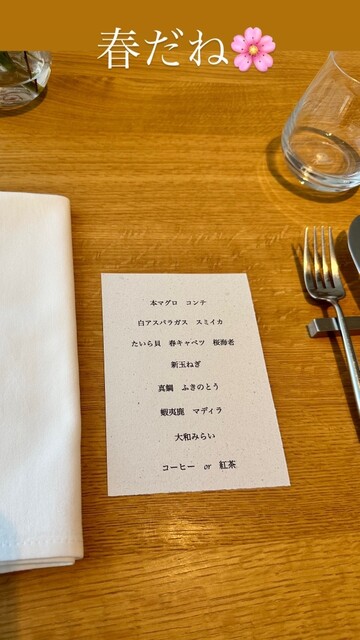 春だね🌸
本マグロ コンテ
白アスパラガス スミイカ
たいら貝 春キャベツ 桜海老
新玉ねぎ
真鯛 ふきのとう
蝦夷鹿 マディラ
大和みらい
コーヒー or 紅茶